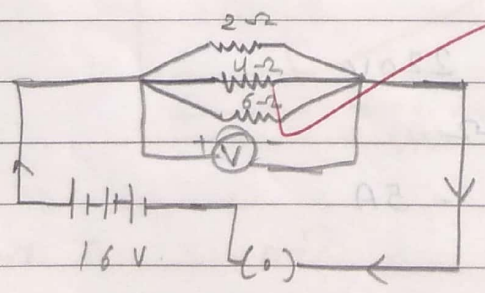 2 Ω
4 Ω
6 Ω
+ V
16 V
(o)